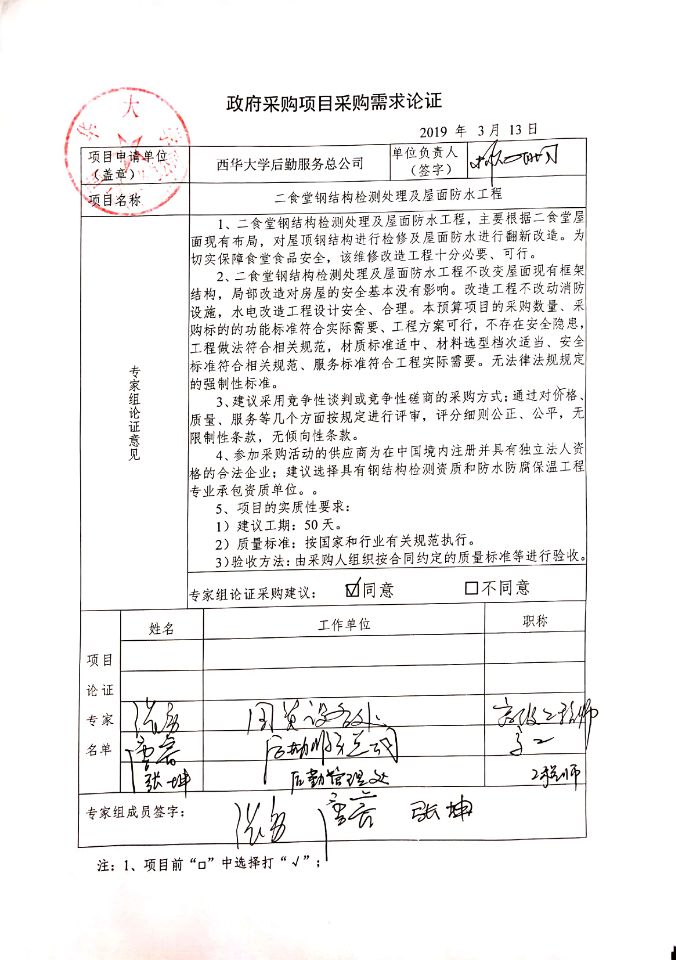 政府采购项目采购需求论证
2019 年 3 月 13 日
项目申请单位
（盖章）
西华大学后勤服务总公司
单位负责人
（签字）
项目名称
二食堂钢结构检测处理及屋面防水工程
专家组论证意见
1、二食堂钢结构检测处理及屋面防水工程，主要根据二食堂屋
面现有布局，对屋顶钢结构进行检修及屋面防水进行翻新改造。为
切实保障食堂食品安全，该维修改造工程十分必要、可行。
2、二食堂钢结构检测处理及屋面防水工程不改变屋面现有框架
结构，局部改造对房屋的安全基本没有影响。改造工程不改动消防
设施，水电改造工程设计安全、合理。本预算项目的采购数量、采
购标的的功能标准符合实际需要、工程方案可行，不存在安全隐患，
工程做法符合相关规范，材质标准适中、材料选型档次适当、安全
标准符合相关规范、服务标准符合工程实际需要。无法律法规规定
的强制性标准。
3、建议采用竞争性谈判或竞争性磋商的采购方式；通过对价格、
质量、服务等几个方面按规定进行评审，评分细则公正、公平，无
限制性条款，无倾向性条款。
4、参加采购活动的供应商为在中国境内注册并具有独立法人资
格的合法企业；建议选择具有钢结构检测资质和防水防腐保温工程
专业承包资质单位。。
5、项目的实质性要求：
1）建议工期：50 天。
2）质量标准：按国家和行业有关规范执行。
3）验收方法：由采购人组织按合同约定的质量标准等进行验收。
专家组论证采购建议： ☑同意 □不同意
项目
论证
专家
名单
姓名 工作单位 职称
国资设备处 高级工程师
后勤服务总公司
张坤 后勤管理处 工程师
专家组成员签字：
张坤
注：1、项目前“□”中选择打“√”；